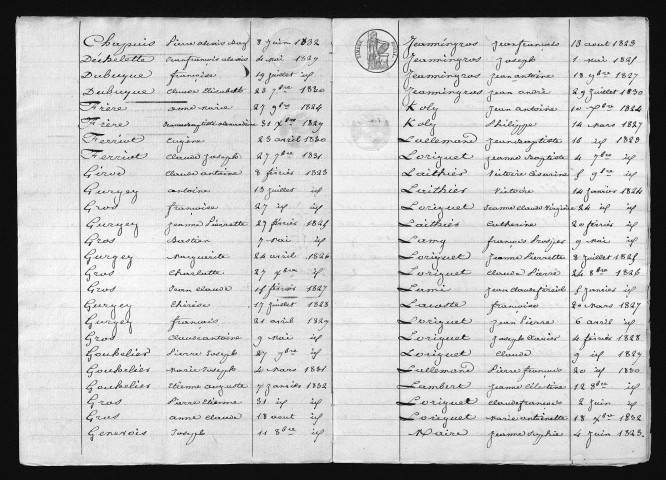 Chapuis Pierre alexis 8 juin 1832
Déchelette Jeanfrançois alexis 4 mai 1827
Dubuque françoise 19 juillet id
Dubuque Claude Elisabeth 23 7bre 1830
Frère anne Marie 27 9bre 1824
Frère 31 xbre 1829
Ferriot Eugène 23 avril 1830
Ferriot Claude Joseph 27 7bre 1831
Girod Claude antoine 8 février 1823
Gurgey antoine 13 juillet id
Gros françoise 27 id id
Gurgey Jeanne Pierrette 27 février 1825
Gros Bastien 7 Mai id
Gurgey Marguerite 24 avril 1826
Gros Charlotte 27 xbre id
Gros Jean Claude 15 février 1827
Gurgey thérèse 17 juillet 1828
Gurgey françois 21 avril 1829
Gros Claude antoine 9 Mai id
Goukelier Pierre Joseph 27 9bre id
Goukelier Marie Joseph 4 Mars 1831
Goukelier Etienne auguste 7 janvier 1832
Gros Pierre Etienne 31 id id
Gros anne Claude 18 aout id
Genevois Joseph 11 8bre id
Jeamingros Jeanfrançois 13 aout 1823
Jeamingros Joseph 1 Mai 1825
Jeamingros Jean antoine 18 9bre 1827
Jeamingros Jean andré 29 juillet 1830
Koly Jean antoine 10 xbre 1824
Koly Philippe 14 Mars 1827
Lallemand Jean Baptiste 10 id 1823
Loriguet Jeanne Baptiste 4 7bre id
Laithier Victoire 5 9bre id
Laithier Victoire 14 janvier 1824
Loriguet Jeanne Claude Virginie 24 id id
Laithier Catherine 20 février id
Lamy françois 9 Mai id
Loriguet Jeanne Pierrette 8 juillet 1825
Loriguet Claude Pierre 24 8bre 1826
Lami Jean Claude 5 janvier id
Lacoste françoise 20 Mars 1827
Loriguet Jean Pierre 6 avril id
Loriguet Joseph Xavier 4 février 1828
Loriguet Claude 9 id 1829
Lallemand Pierre françois 20 id 1830
Lambert Jeanne Célestine 12 8bre id
Loriguet Claude françois 2 juin id
Loriguet Marie antoinette 18 xbre 1832
Maire Jeanne Sophie 4 juin 1823